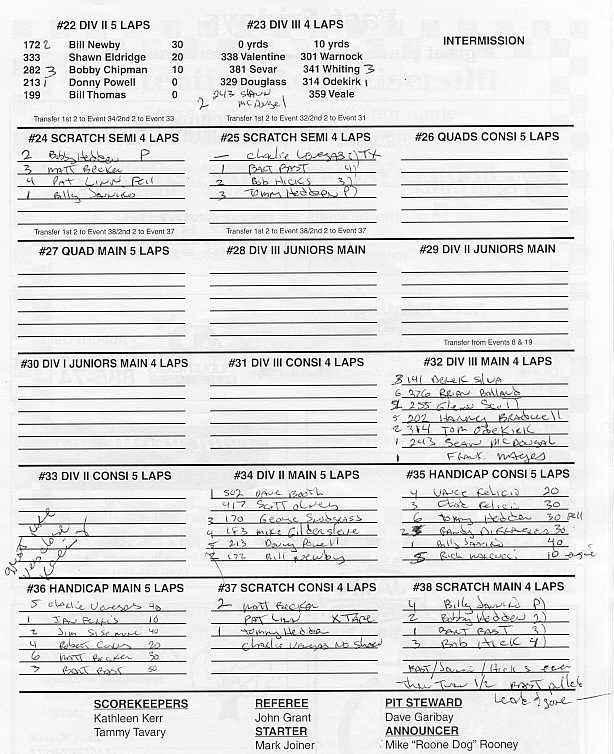 #22 DIV II 5 LAPS
172 2 Bill Newby 30
333 Shawn Eldridge 20
282 3 Bobby Chipman 10
213 1 Donny Powell 0
199 Bill Thomas 0
Transfer 1st 2 to Event 34/2nd 2 to Event 33
#23 DIV III 4 LAPS
0 yrds 10 yrds
338 Valentine 301 Warnock
381 Sevar 341 Whiting 3
329 Douglass 314 Odekirk 1
2 243 McDougal 359 Veale
Transfer 1st 2 to Event 32/2nd 2 to Event 31
INTERMISSION
#24 SCRATCH SEMI 4 LAPS
2 Bobby Hedden P
3 Matt Becker
4 Pat Linn Fell
1 Billy Janniro
Transfer 1st 2 to Event 38/2nd 2 to Event 37
#25 SCRATCH SEMI 4 LAPS
— Charlie Venegas TX
1 Bart Bast 4)
2 Bob Hicks 3)
3 Tommy Hedden P)
Transfer 1st 2 to Event 38/2nd 2 to Event 37
#26 QUADS CONSI 5 LAPS
#27 QUAD MAIN 5 LAPS
#28 DIV III JUNIORS MAIN
#29 DIV II JUNIORS MAIN
Transfer from Events 8 & 19
#30 DIV I JUNIORS MAIN 4 LAPS
#31 DIV III CONSI 4 LAPS
#32 DIV III MAIN 4 LAPS
3 141 Derek Silva
6 276 Brian Bolland
255 Glenn Scott
5 202 Harvey Bradwell
2 314 Tom Odekirk
1 243 Sean McDougal
Frank Mayes
#33 DIV II CONSI 5 LAPS
#34 DIV II MAIN 5 LAPS
1 502 Dave Booth
417 Scott
3 170 George Snodgrass
4 153 Mike Gildersleve
213 Donny Powell
172 Bill Newby
#35 HANDICAP CONSI 5 LAPS
4 Vance Felicio 20
3 Chad Felicio 30
6 Tommy Hedden 30 fell
2 Randy 30
1 Billy Janniro 40
5 Rick 10 engine
#36 HANDICAP MAIN 5 LAPS
5 Charlie Venegas 40
1 10
2 Jim Sisemore 40
4 Robert Curry 20
6 Matt Becker 30
3 Bart Bast 50
#37 SCRATCH CONSI 4 LAPS
2 Matt Becker
Pat Linn X Tape
1 Tommy Hedden
Charlie Venegas No Show
#38 SCRATCH MAIN 4 LAPS
4 Billy Janniro P)
2 Bobby Hedden 2)
1 Bart Bast 3)
3 Bob Hick 4)
Bast/Janni/Hicks even
then Turn 1/2 Bast pulls
lead
SCOREKEEPERS
Kathleen Kerr
Tammy Tavary
REFEREE
John Grant
STARTER
Mark Joiner
PIT STEWARD
Dave Garibay
ANNOUNCER
Mike "Roone Dog" Rooney